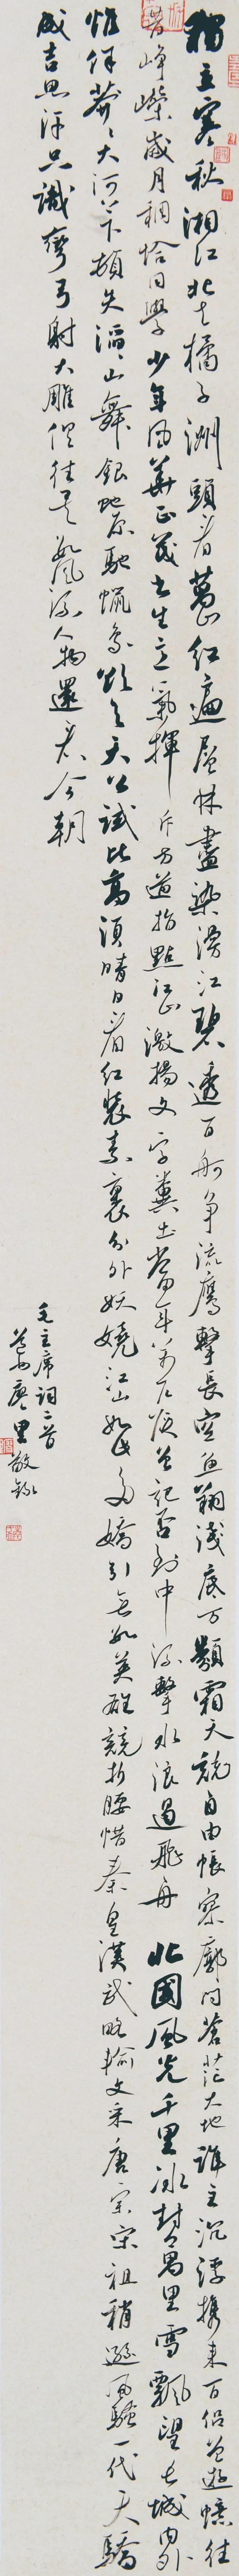 獨立寒秋湘江北去橘子洲頭看萬山紅遍層林盡染漫江碧透百舸争流鷹擊長空魚翔淺底万類霜天競自由悵寥廓問蒼茫大地誰主沉浮携來百侣曾遊憶往
昔崢嶸歲月稠恰同學少年風華正茂書生意氣揮斥方遒指點江山激揚文字糞土當年萬户侯曾記否到中流擊水浪遏飛舟 北國風光千里冰封萬里雪飄望長城内外
惟餘莽々大河上下頓失滔々山舞銀蛇原馳蠟象欲與天公試比高須晴日看紅裝素裹分外妖嬈江山如此多嬌引無數英雄競折腰惜秦皇漢武略輸文采唐宗宋祖稍遜風騷一代天驕
成吉思汗只識彎弓射大雕俱往矣數風流人物還看今朝
毛主席詞二首
廖里敬錄